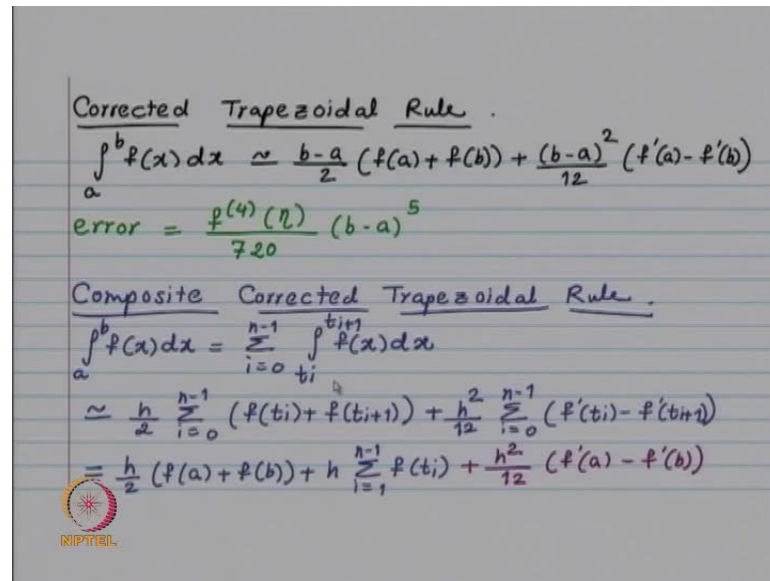 Corrected Trapezoidal Rule.
∫_a^b f(x) dx ≃ (b-a)/2 (f(a) + f(b)) + (b-a)^2/12 (f'(a) - f'(b))
error = f^(4)(η)/720 (b-a)^5
Composite Corrected Trapezoidal Rule.
∫_a^b f(x) dx = Σ_{i=0}^{n-1} ∫_{ti}^{ti+1} f(x) dx
≃ h/2 Σ_{i=0}^{n-1} (f(ti) + f(ti+1)) + h^2/12 Σ_{i=0}^{n-1} (f'(ti) - f'(ti+1))
= h/2 (f(a) + f(b)) + h Σ_{i=1}^{n-1} f(ti) + h^2/12 (f'(a) - f'(b))
NPTEL